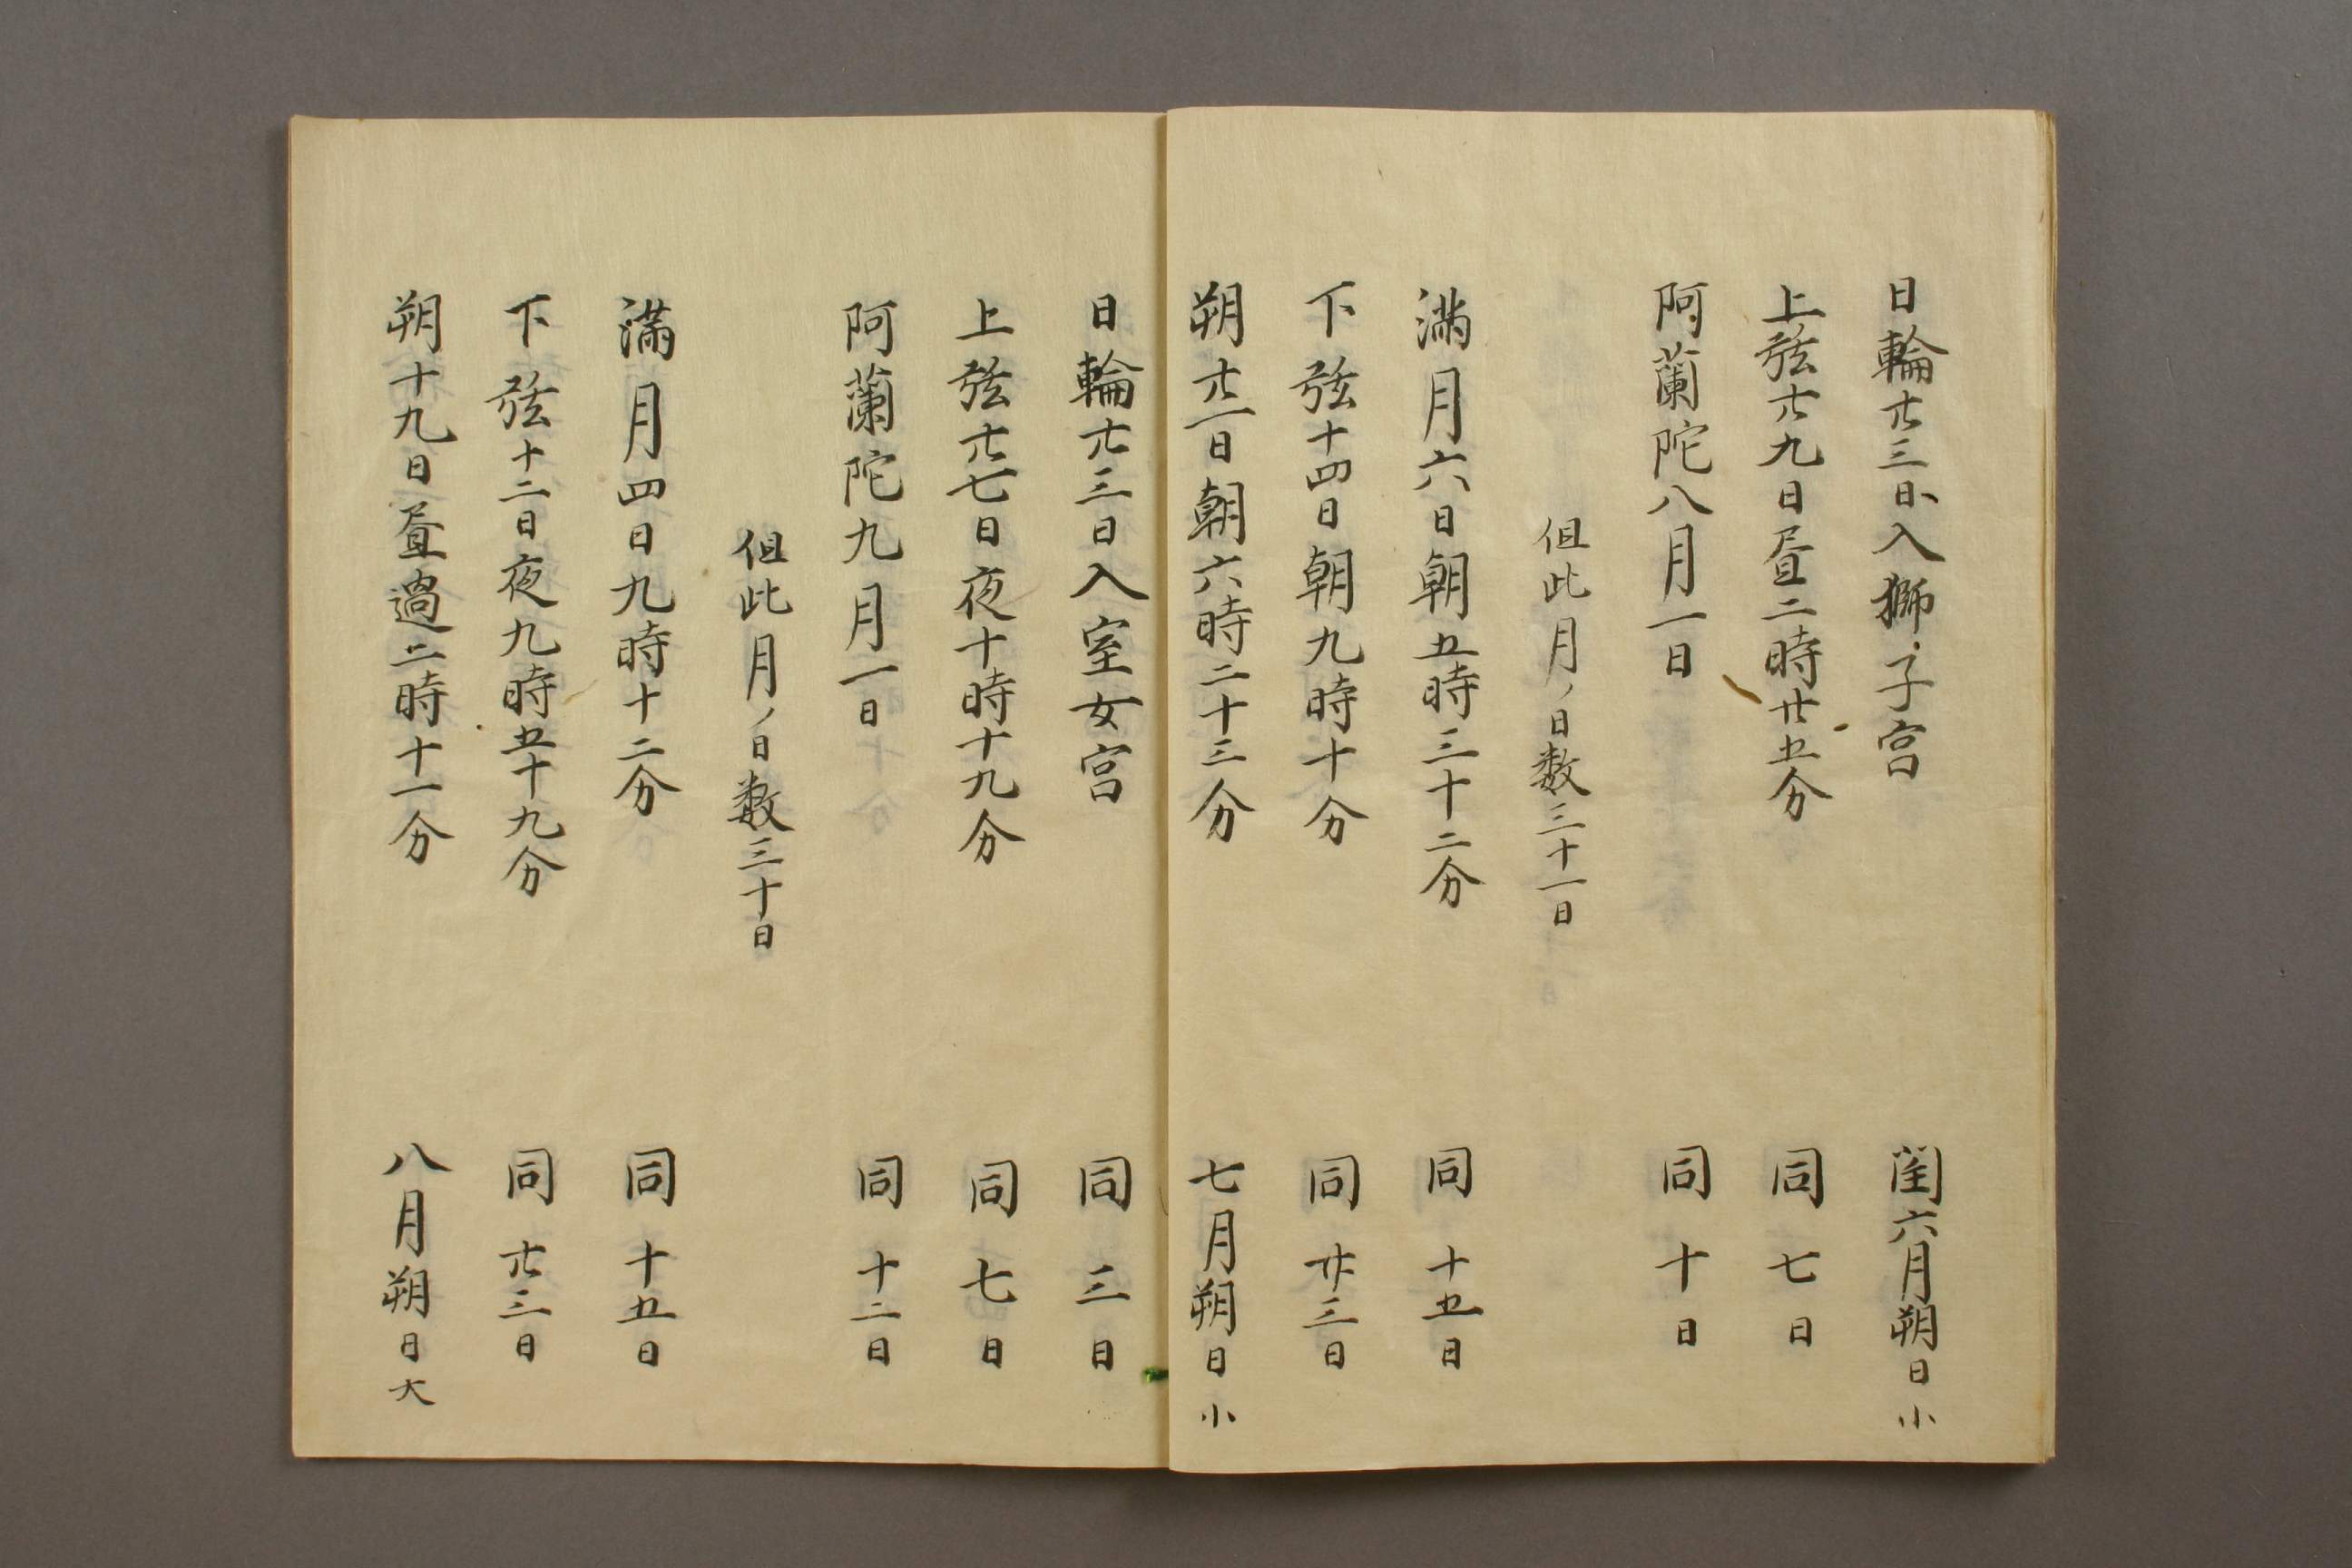 日輪廿三日入獅子宮 閏六月朔日小
上弦廿九日昼二時廿五分 同七日
阿蘭陀八月一日 同十日
但此月ノ日数三十一日
満月六日朝五時三十二分 同十五日
下弦十四日朝九時十分 同廿三日
朔廿一日朝六時二十三分 七月朔日小
日輪廿三日入室女宮 同三日
上弦廿七日夜十時十九分 同七日
阿蘭陀九月一日 同十二日
但此月ノ日数三十日
満月四日九時十二分 同十五日
下弦十二日夜九時五十九分 同廿三日
朔十九日昼過二時十一分 八月朔日大